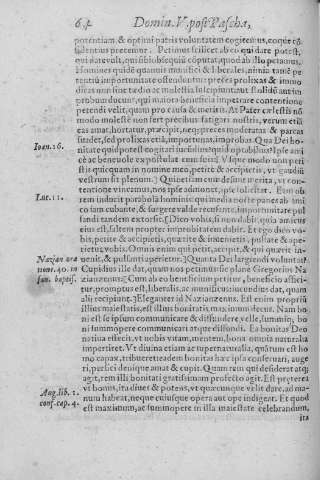 64. Domin. V. post Pascha,
potentiam, & optimi patris voluntatem cogitemus, eoque
identius precemur. Petimus scilicet ab eo qui dare potest,
qui nate vult, qui sibi obsequiū cóputat, quod ab illo petamus.
Homines quidē quamuis munifici & liberales, nimia tamē petentiū
importunitate offenduntur preces prolixas & immodicas
non sine tædio ac molestia suscipiunt aut solidū autem
probum ducunt, qui maiora beneficia impetrare contentione
petendi velit, quam pro causa & meritis. At Pater cælestis nō
modo molestè non fert precibus fatigari nostris, verum etiā
eas amat, hortatur, præcipit, neq; preces moderatas & parcas
suadet, sed prolixas etiā, importunas, improbas. Qua Dei bonitate
quid potest cogitari iucundius quid optabilius? Ipse
Ioan. 16. amicè ac beneuole expostulat cum suis) Vsque modo non petistis
quicquam in nomine meo, petite & accipietis, vt gaudiū
vestrum sit plenum.] Quioetiam cum desunt merita, vt contentione
vincamus, nos ipse admonet, ipse solicitat. Eam ob
Luc. 11. rem inducit parabolā hominis qui media nocte panes ab amico
iam cubante, & surgere valde recusante, importunitate pulsandi
tandem extorsit.) Dico vobis, si non dabit, quia amicus
eius est, saltem propter improbitatem dabit. Et ego dico vobis,
petite & accipietis, quærite & inuenietis, pulsate & aperietur
vobis. Omnis enim qui petit, accipit, & qui quærit inuenit,
& pulsanti aperietur.] Quanta Dei largiendi voluntas?
Nazian. oratione. 40. in san. baptis. Cupidius ille dat, quam nos petimus sic plane Gregorius Nazianzenus)
Cum ab eo beneficium petitur, beneficio afficitur,
promptus est, liberalis, ac munificus: iucundius dat, quam
alii recipiant.] Eleganter id Nazianzenus. Est enim propriū
illius maiestatis, est illius bonitatis maximum decus. Nam boni
est seipsum communicare & diffundere velle, luminis, boni
lumine communicari atque diffundi. Ea bonitas Deo
natiua effecit, vt nobis vitam, mentem, bona omnia naturalia
impertiret. Vt diuina etiam ac supernaturalia, quorum est homo
capax, tribueret: eadem bonitas hæc ipsa conseruari, augeri,
perfici denique amat & cupit. Quam rem qui desiderat atq;
agit, rem illi bonitati gratissimam profecto agit. Est præterea
Aug. lib. 1. conf. cap. 4. vt bonus, ita diues & potens, vt quæcunque velit dare, ad manum
habeat, neque cuiusque opera aut ope indiget. Et quod
est maximum, ac summopere in illa maiestate celebrandum,
ita